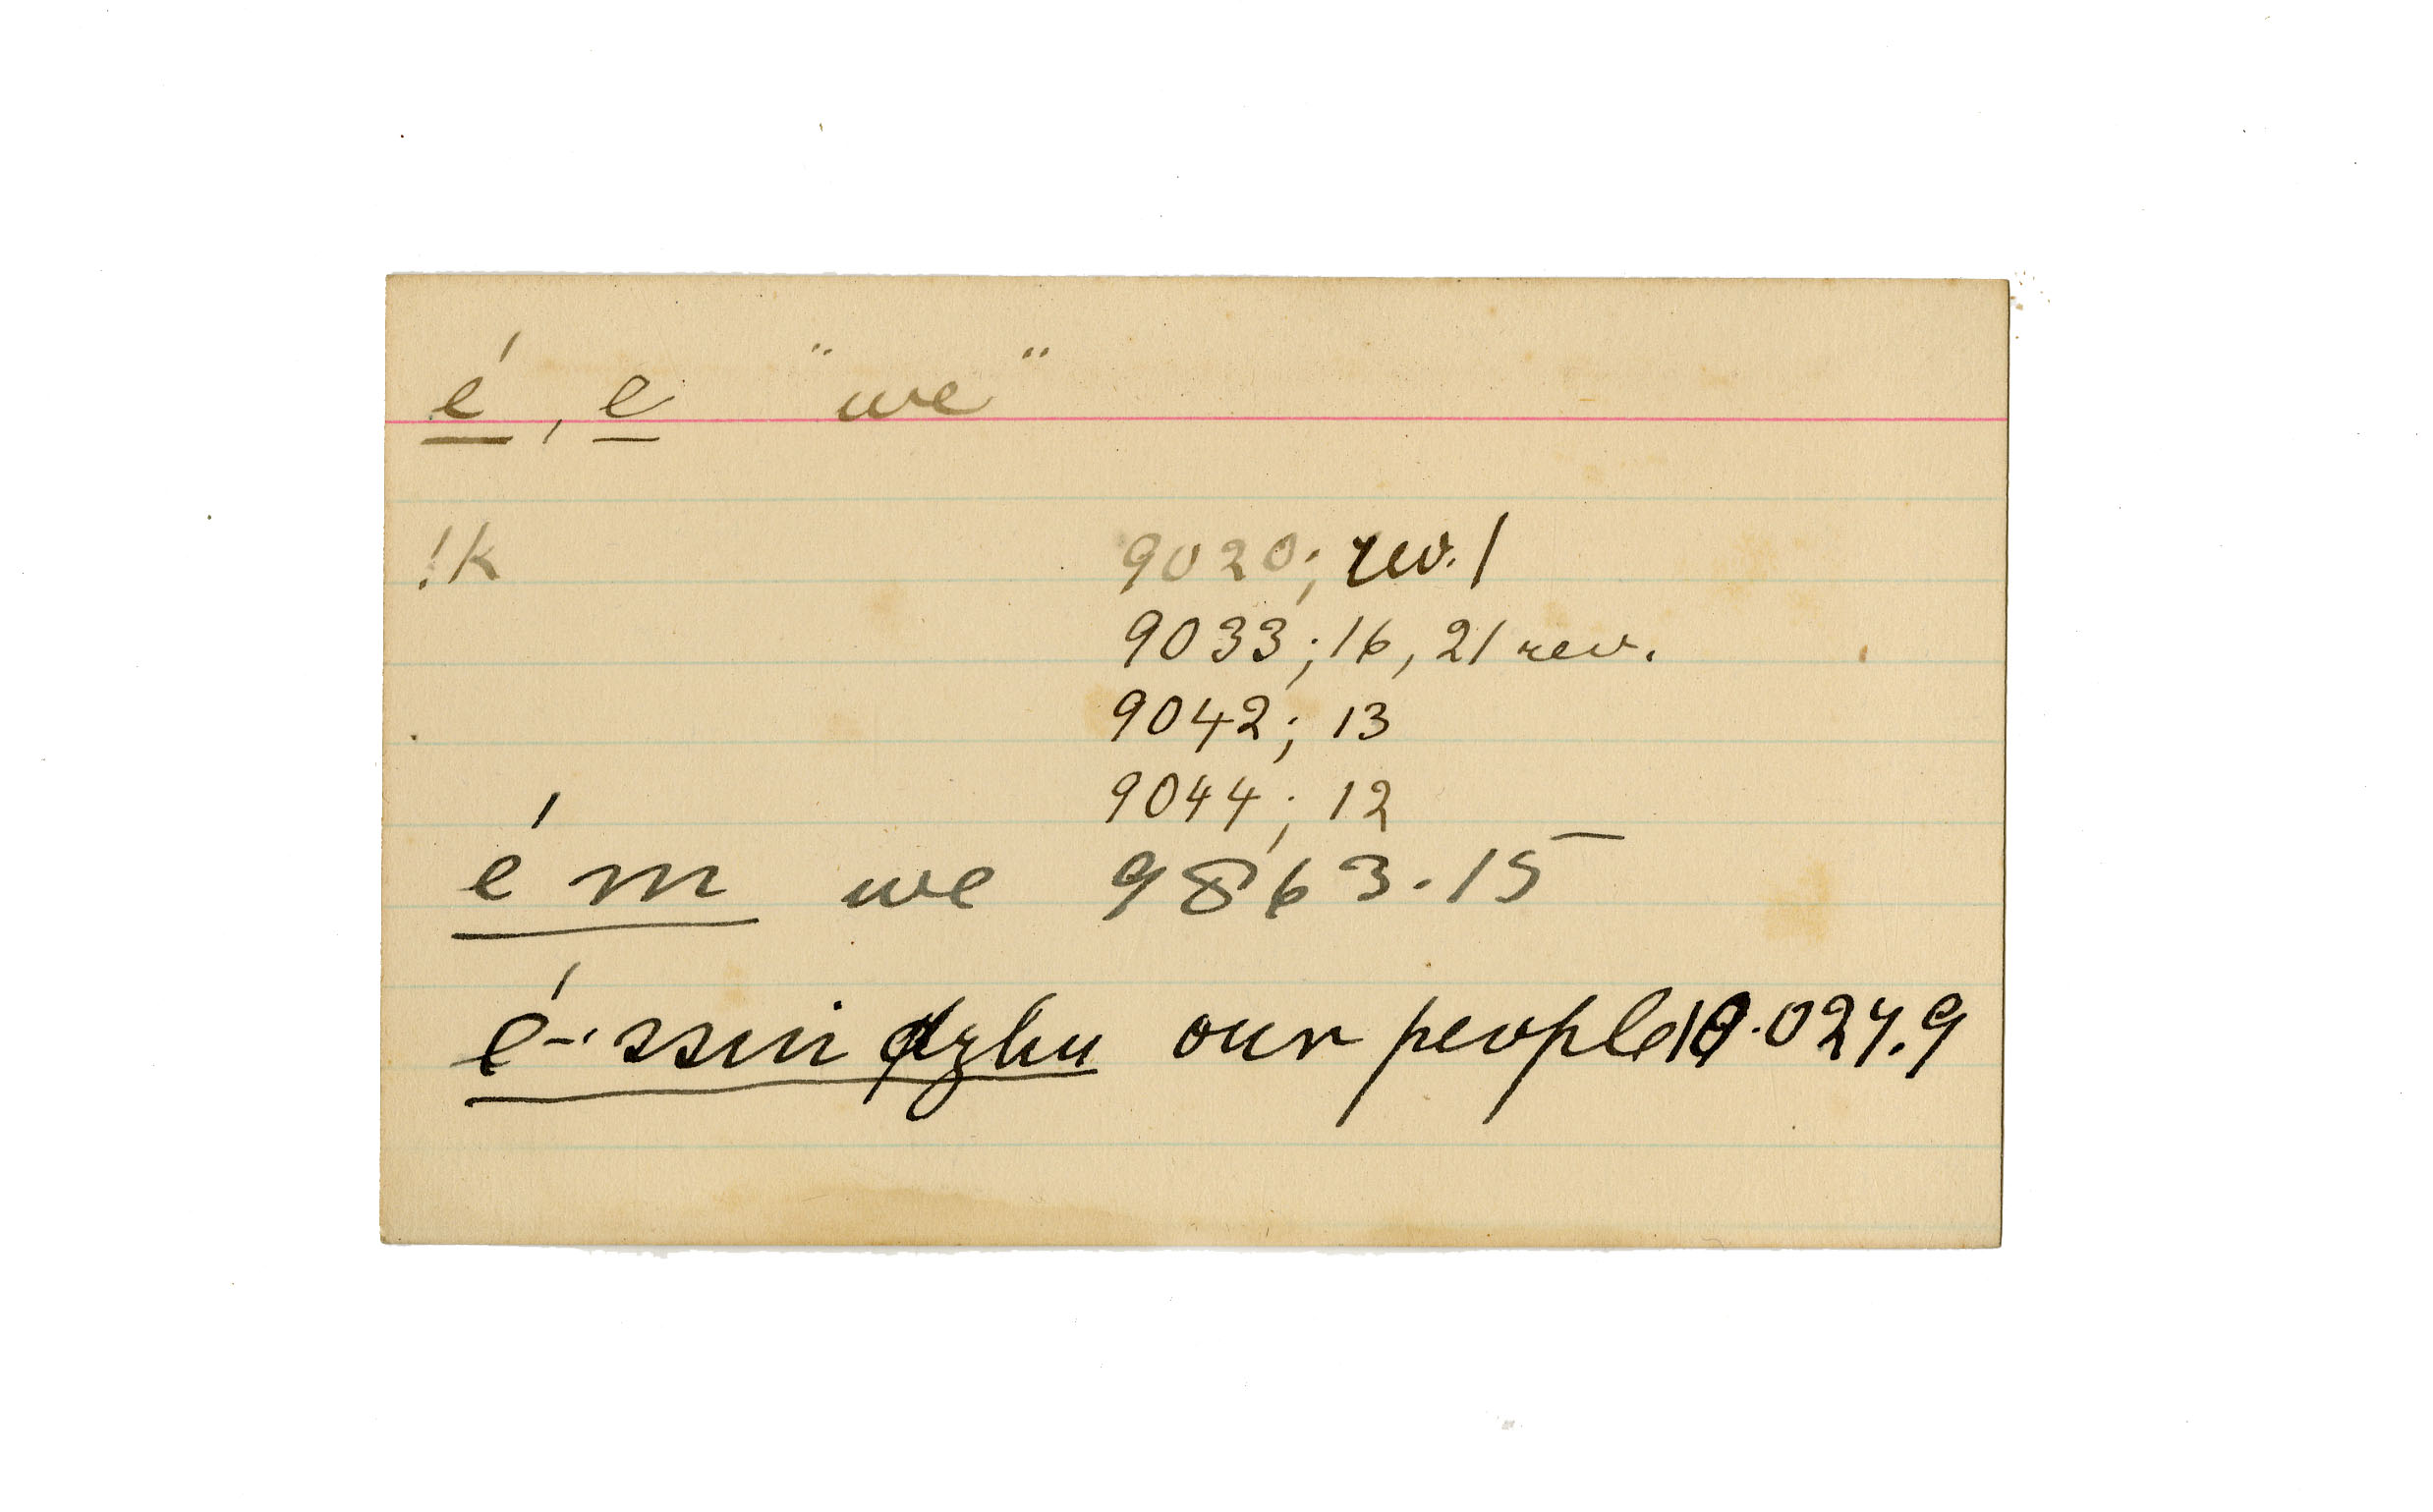 é, e "we"
!k 9020; rev. 1
9033; 16, 21 rev.
9042; 13
9044; 12
é m we 9863.15
é-ssin our people 10.024.9